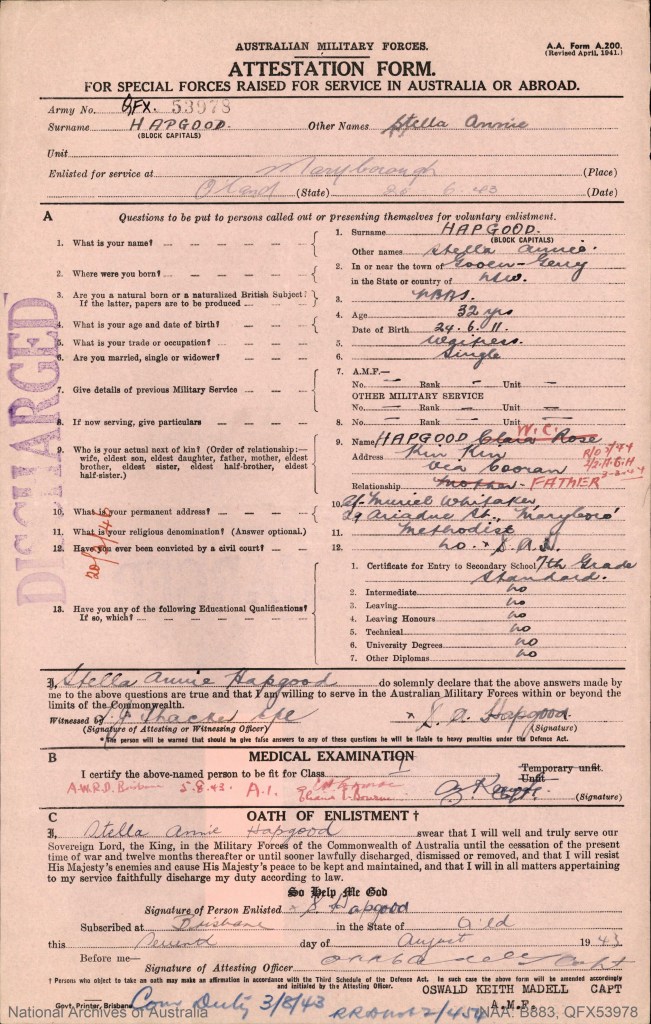 AUSTRALIAN MILITARY FORCES.
A.A. Form A.200.
(Revised April, 1941.)
ATTESTATION FORM.
FOR SPECIAL FORCES RAISED FOR SERVICE IN AUSTRALIA OR ABROAD.
Army No. QFX. 53978
Surname HAPGOOD. Other Names Stella Annie
(BLOCK CAPITALS)
Unit
Enlisted for service at Maryborough (Place)
Q'land (State) 26 6.43 (Date)
A Questions to be put to persons called out or presenting themselves for voluntary enlistment.
1. What is your name? 1. Surname HAPGOOD.
(BLOCK CAPITALS)
Other names Stella Annie.
2. Where were you born? 2. In or near the town of
in the State or country of NSW.
3. Are you a natural born or a naturalized British Subject? 3. NBBS.
If the latter, papers are to be produced
4. What is your age and date of birth? 4. Age 32 yrs
Date of Birth 24.6.11.
5. What is your trade or occupation? 5. Waitress.
6. Are you married, single or widower? 6. Single
7. Give details of previous Military Service 7. A.M.F.—
No. — Rank — Unit —
OTHER MILITARY SERVICE
No. — Rank — Unit —
8. If now serving, give particulars 8. No. — Rank — Unit —
9. Who is your actual next of kin? (Order of relationship:— wife, eldest son, eldest daughter, father, mother, eldest brother, eldest sister, eldest half-brother, eldest half-sister.)
9. Name HAPGOOD Clara Rose W.C.
Address Kin Kin
via Cooran
Relationship Mother- FATHER
10. What is your permanent address? 10. c/- Muriel Whitaker
29 Ariadne St., Maryboro'
11. What is your religious denomination? (Answer optional.) 11. Methodist
12. Have you ever been convicted by a civil court? 12. No. x S.A.H.
13. Have you any of the following Educational Qualifications?
If so, which?
1. Certificate for Entry to Secondary School 7th Grade Standard.
2. Intermediate no
3. Leaving no
4. Leaving Honours no
5. Technical no
6. University Degrees no
7. Other Diplomas no
DISCHARGED
I, Stella Annie Hapgood do solemnly declare that the above answers made by
me to the above questions are true and that I am willing to serve in the Australian Military Forces within or beyond the
limits of the Commonwealth.
Witnessed by x S. A. Hapgood.
(Signature of Attesting or Witnessing Officer) (Signature)
* The person will be warned that should he give false answers to any of these questions he will be liable to heavy penalties under the Defence Act.
B MEDICAL EXAMINATION
I certify the above-named person to be fit for Class 1 Temporary unfit.
Unfit
5.8.43 A.1.
(Signature)
C OATH OF ENLISTMENT †
I, Stella Annie Hapgood swear that I will well and truly serve our
Sovereign Lord, the King, in the Military Forces of the Commonwealth of Australia until the cessation of the present
time of war and twelve months thereafter or until sooner lawfully discharged, dismissed or removed, and that I will resist
His Majesty's enemies and cause His Majesty's peace to be kept and maintained, and that I will in all matters appertaining
to my service faithfully discharge my duty according to law.
So Help Me God
Signature of Person Enlisted x S Hapgood
Subscribed at Brisbane in the State of Qld
this Second day of August 1943
Before me—
Signature of Attesting Officer Capt
† Persons who object to taking an oath may make an affirmation in accordance with the Third Schedule of the Defence Act. In such case the above form will be amended accordingly
and initialled by the Attesting Officer.
OSWALD KEITH MADELL CAPT
A.M.F.
Govt. Printer, Brisbane
Com Duty 3/8/43
National Archives of Australia NAA: B883, QFX53978